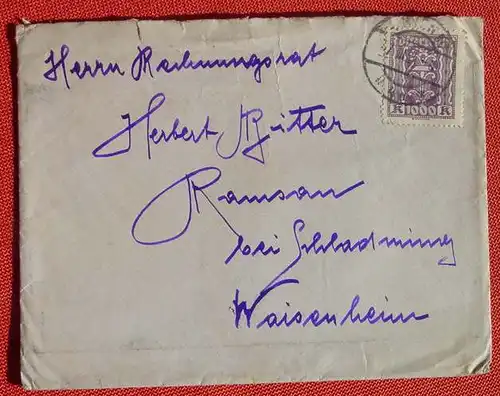 Herrn Rechnungsrat
Herbert Ritter
Ramsau
bei Schladming
Waisenheim
K 1000 K